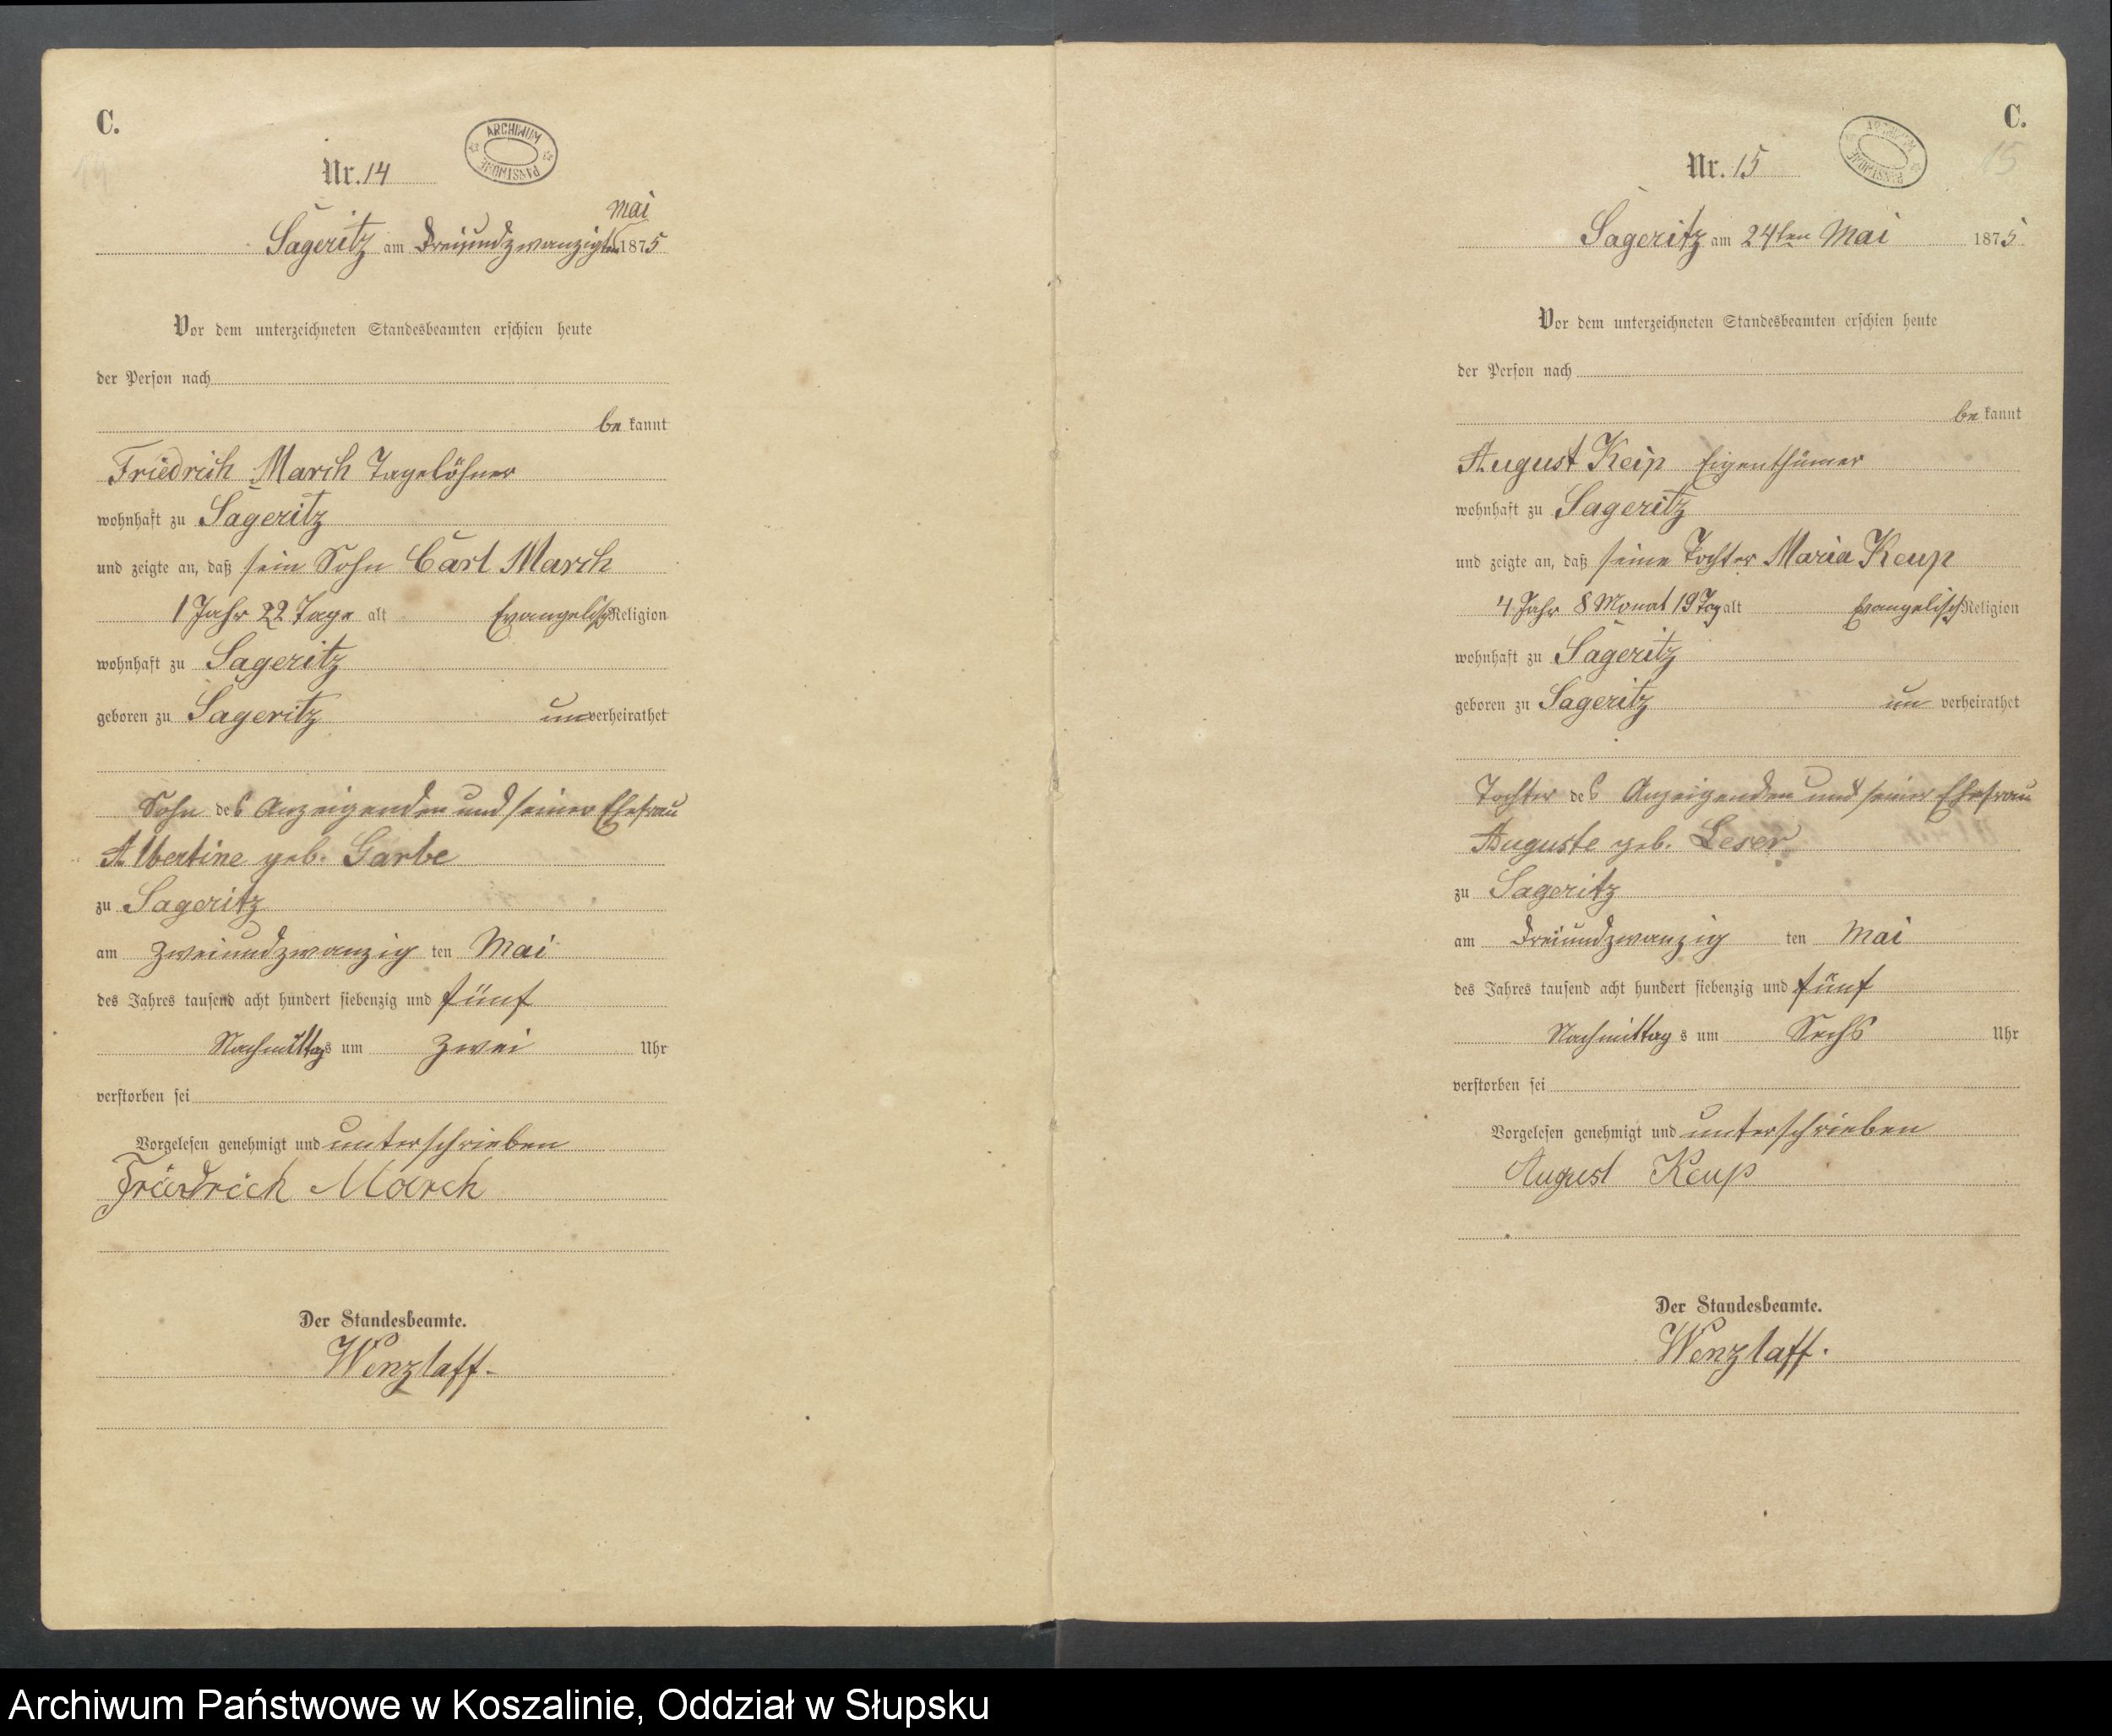 C.
Nr. 14
ARCHIWUM PAŃSTWOWE
Mai
Sageritz am Dreiundzwanzigten 1875
Vor dem unterzeichneten Standesbeamten erschien heute
der Person nach
be kannt
Friedrich March Tagelöhner
wohnhaft zu Sageritz
und zeigte an, daß sein Sohn Carl March
1 Jahr 22 Tage alt Evangelisch Religion
wohnhaft zu Sageritz
geboren zu Sageritz un verheirathet
Sohn des Anzeigenden und seiner Ehefrau
Albertine geb. Garbe
zu Sageritz
am zweiundzwanzig ten Mai
des Jahres tausend acht hundert siebenzig und fünf
Nachmittags um zwei Uhr
verstorben sei
Vorgelesen genehmigt und unterschrieben
Friedrich March
Der Standesbeamte.
Wenzlaff.
C.
15
Nr. 15
ARCHIWUM PAŃSTWOWE
Sageritz am 24ten Mai 1875
Vor dem unterzeichneten Standesbeamten erschien heute
der Person nach
be kannt
August Keip Eigenthümer
wohnhaft zu Sageritz
und zeigte an, daß seine Tochter Maria Keup
4 Jahr 8 Monat 19 Tag alt Evangelisch Religion
wohnhaft zu Sageritz
geboren zu Sageritz un verheirathet
Tochter des Anzeigenden und seiner Ehefrau
Auguste geb. Leser
zu Sageritz
am Dreiundzwanzig ten Mai
des Jahres tausend acht hundert siebenzig und fünf
Nachmittag s um Sechs Uhr
verstorben sei
Vorgelesen genehmigt und unterschrieben
August Keup
Der Standesbeamte.
Wenzlaff.
Archiwum Państwowe w Koszalinie, Oddział w Słupsku